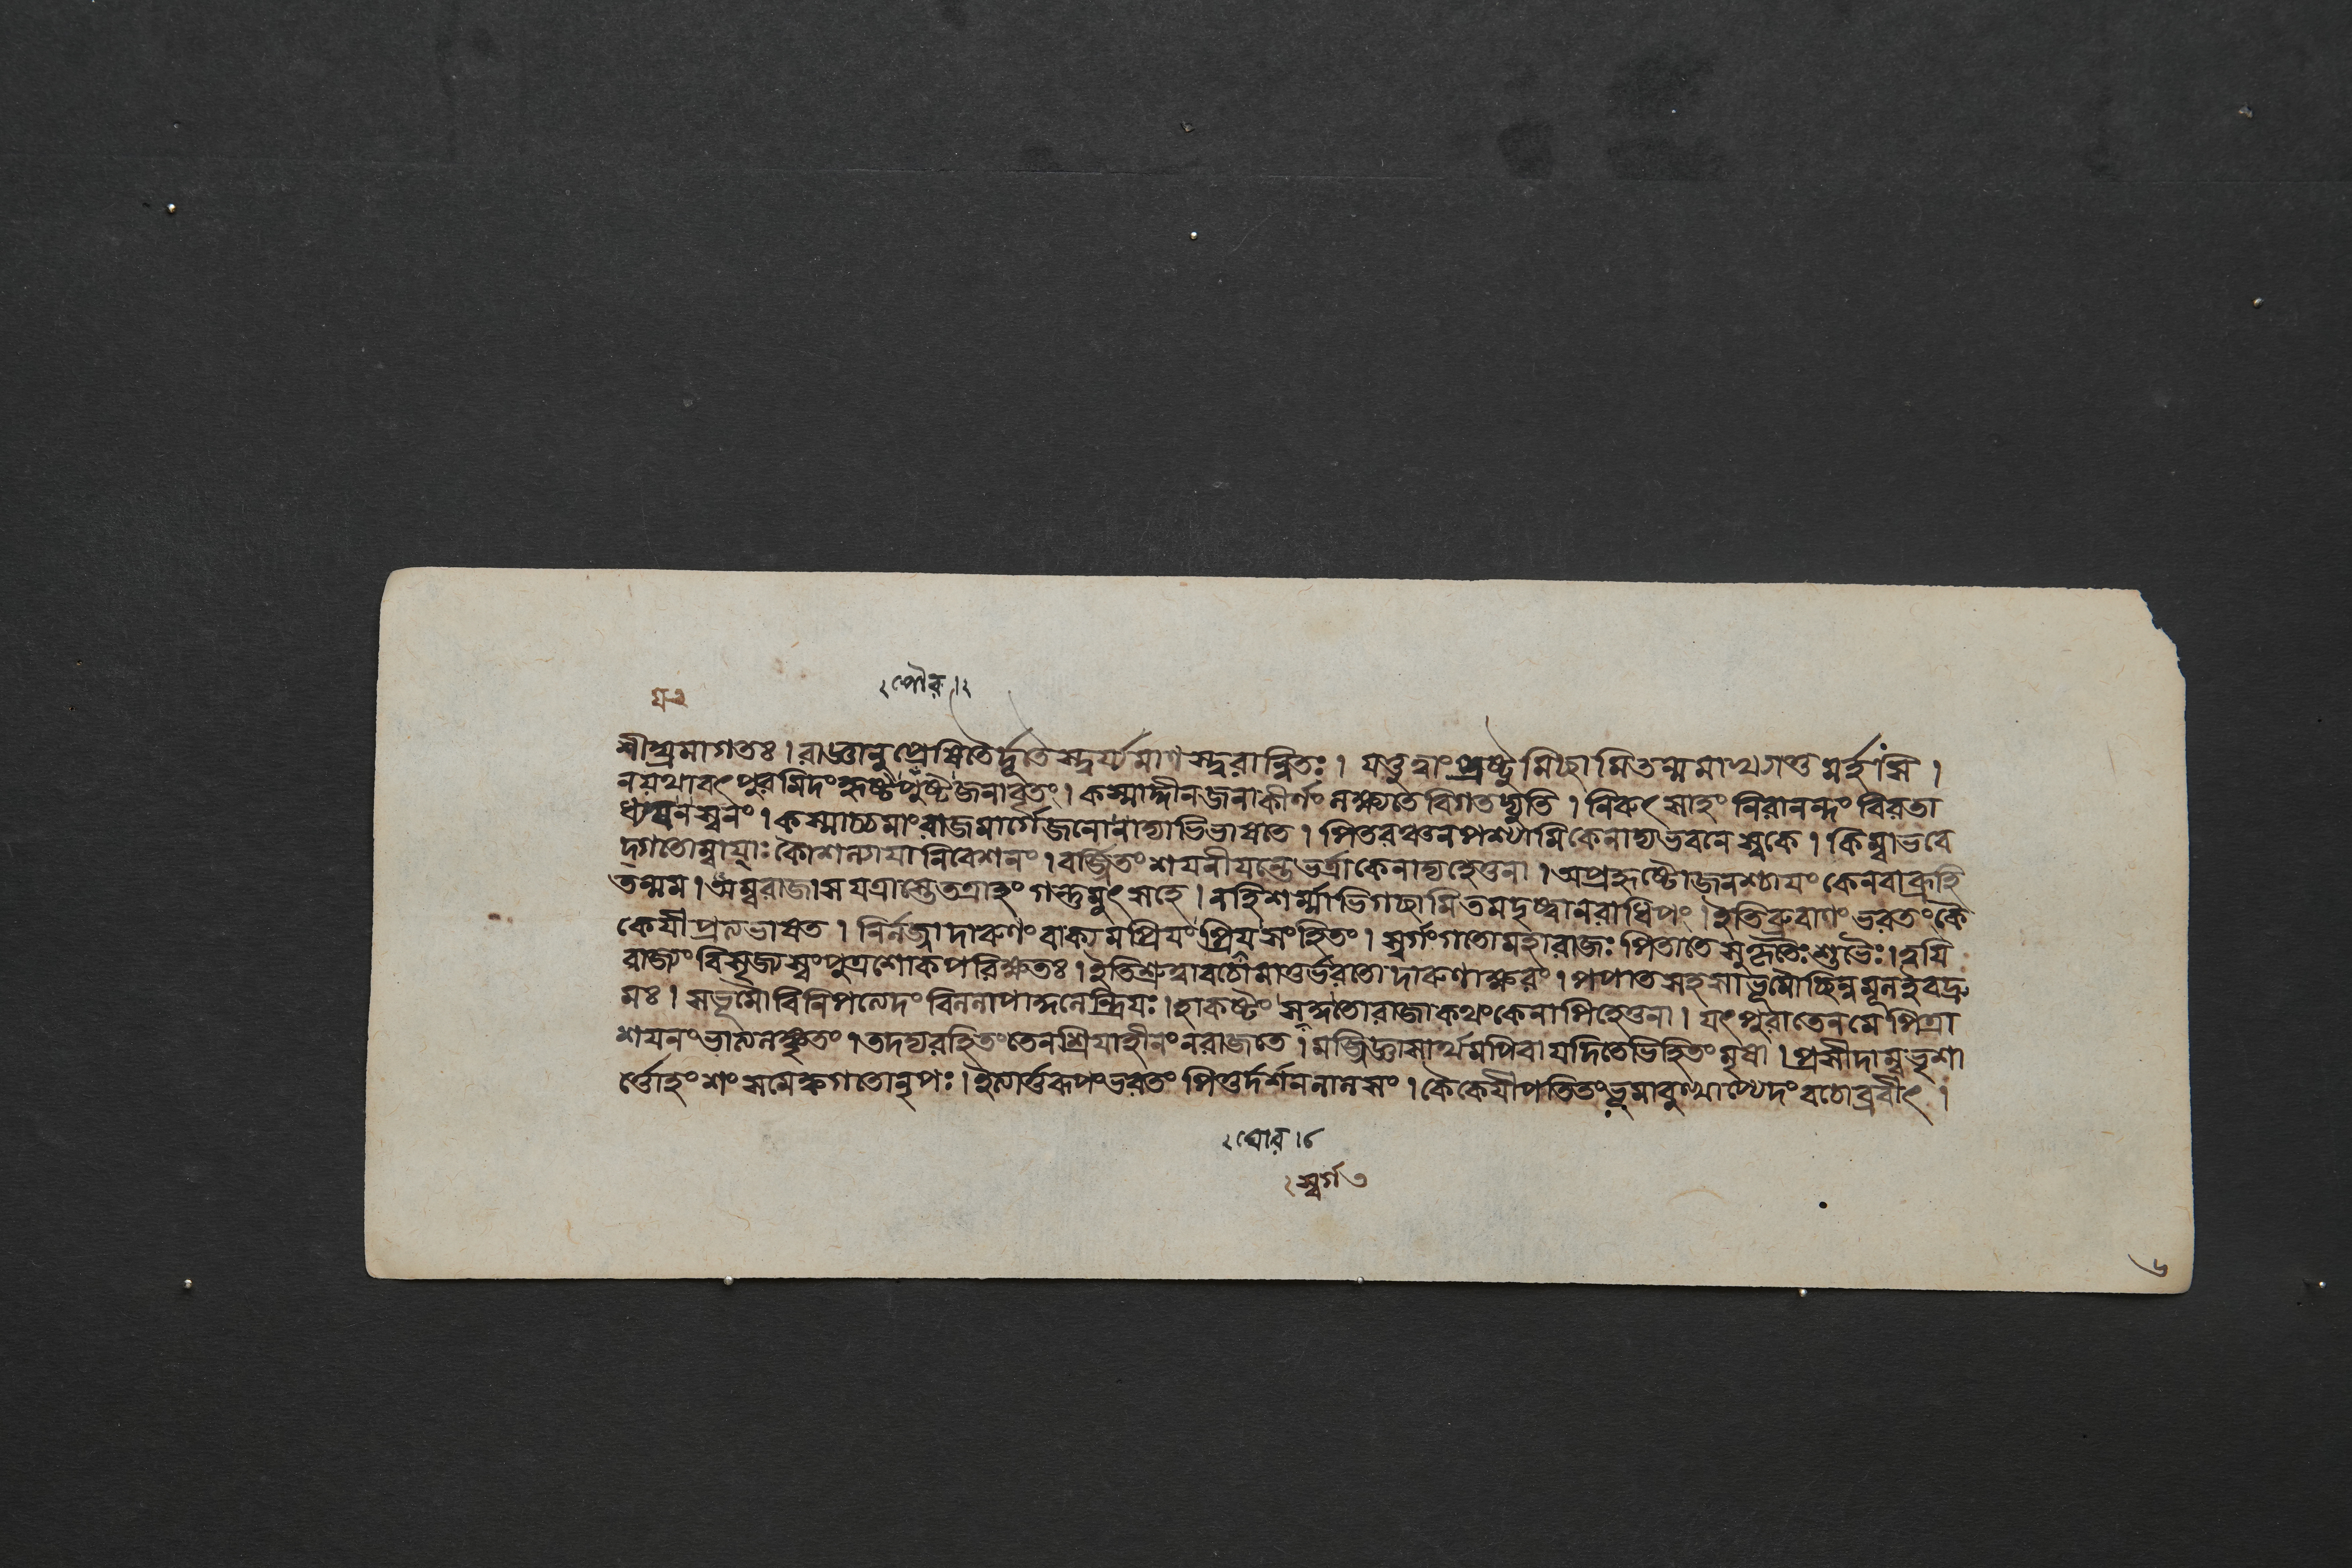 ২ পৌর । ২
শীঘ্রমাগতঃ । রাজ্ঞানুপ্রেষিতৈর্দ্দূতৈস্ত্বর্য্যমাণস্ত্বরান্বিতঃ । যত্তুত্বাং প্রষ্টুমিচ্ছামিতন্মমাখ্যাতুমর্হসি ।
নযথাবৎপুরমিদংহৃষ্টৈপুষ্টৈজনাবৃতং । কস্মাদ্দীনজনাকীর্ণং লক্ষ্যতেবিগতদ্যুতি । নিরুৎসাহং নিরানন্দং বিরতা
ধ্যয়নস্বনং । কস্মাচ্চমাংরাজমার্গেজনোনাদ্যাভিভাষতে । পিতরঞ্চনপশ্যামিকেনাদ্যভবনেস্বকে । কিম্বাভবে
দ্গতোম্বায়াঃ কৌশল্যায়ানিবেশনং । বর্জ্জিতং শয়নীয়ন্তেভর্ত্রাকেনাদ্যহেতুনা । অপ্রহৃষ্টোজনশ্চায়ং কেনবাব্রূহি
তন্মম । অম্বরাজাসযত্রাস্তেতত্রাহং গন্তুমুৎসহে । নহিশর্ম্মাভিগচ্ছামিতমদৃষ্ট্বানরাধিপং । ইতিব্রুবাণং ভরতংকৈ
কেয়ীপ্রত্যভাষত । নির্লজ্জাদারুণং বাক্যমপ্রিয়ং প্রিয়সংহিতং । স্বর্গংগতোমহারাজঃ পিতাতেসুকৃতৈঃশুভৈঃ । ত্বয়ি
রাজ্যং বিসৃজ্যস্বংপুত্রশোকপরিক্ষতঃ । ইতিশ্রুত্বাবচোমাতুর্ভরতোদারুণাক্ষরং । পপাতসহসাভূমৌছিন্নমূলইবদ্রু
মঃ । সভূমৌবিনিপত্যেদং বিললাপাকুলেন্দ্রিয়ঃ । হাকষ্টং সঙ্গতোরাজাকথংকেনাপিহেতুনা । যৎপুরাতেনমেপিত্রা
শয়নংভাত্যলঙ্কৃতং । তদদ্যরহিতংতেনশ্রিয়াহীনংনরাজতে । মজ্জিজ্ঞাসার্থমপিবাযদিতেভিহিতংমৃষা । প্রসীদাম্বভৃশা
র্ত্তোহং শংসমেক্বগতোনৃপঃ । ইত্যার্ত্তরূপংভরতং পিতুর্দর্শনলালসং । কৈকেয়ীপতিতংভূমাবুত্থাপ্যেদংবচোব্রবীৎ ।
২ ঘোর । ৮
২ স্বর্গ ৩
৬